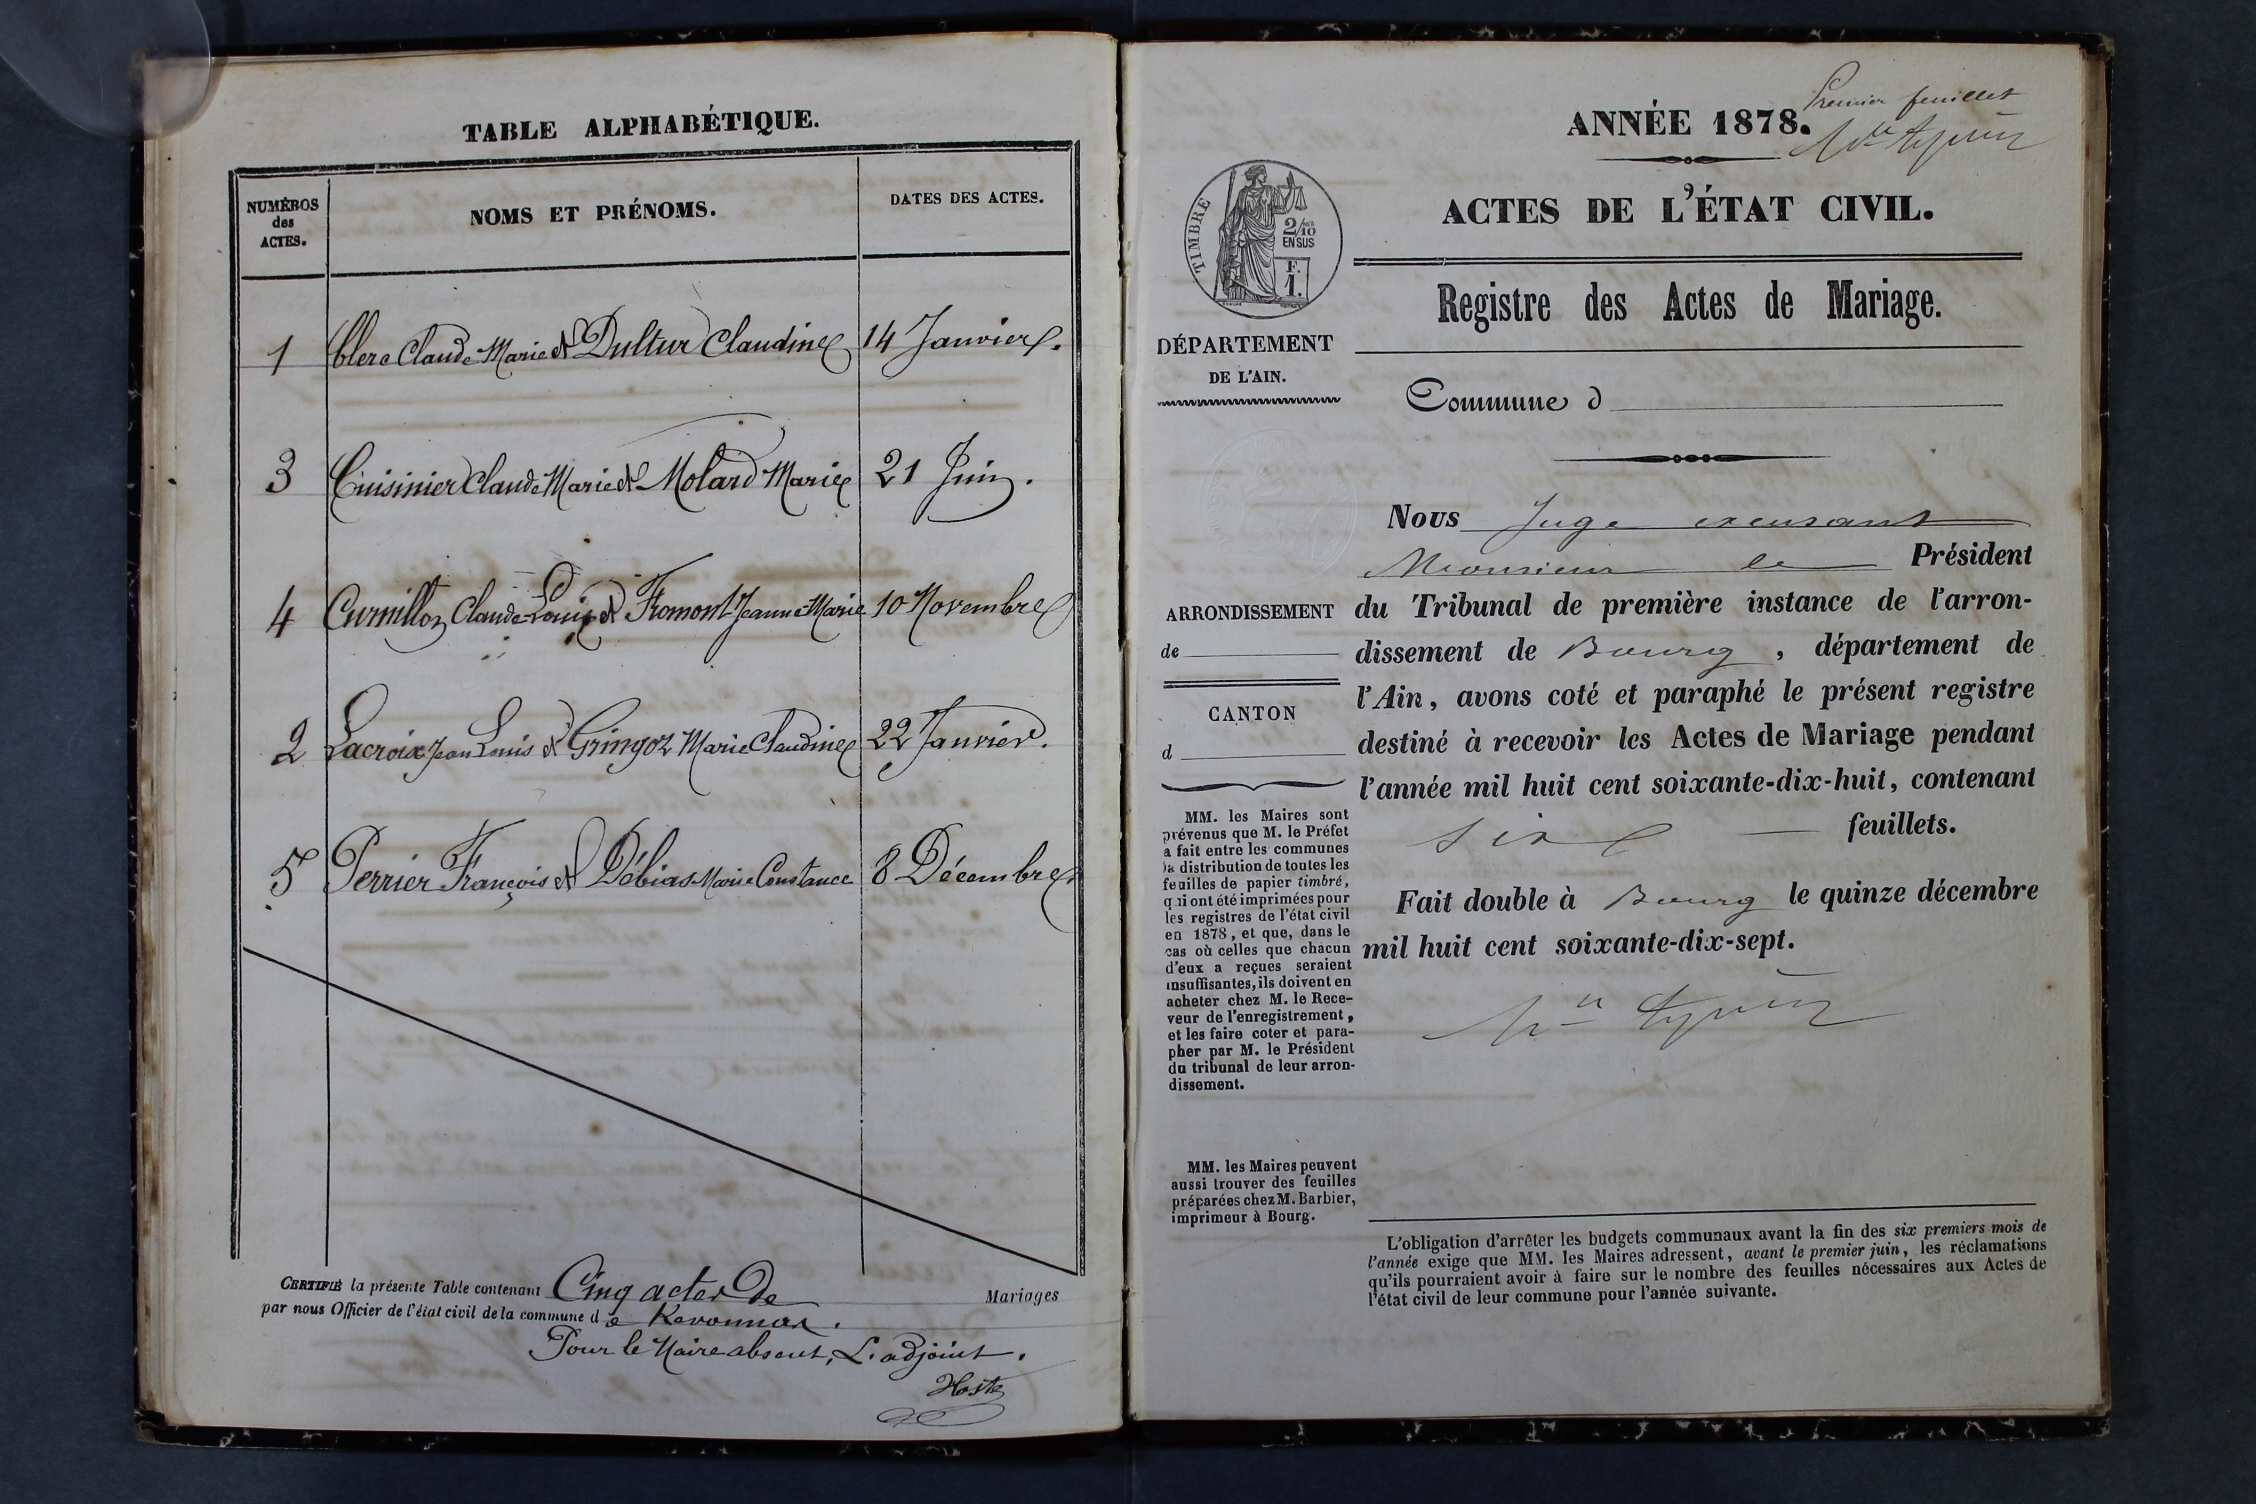 TABLE ALPHABÉTIQUE.
NUMÉROS
des
ACTES.
NOMS ET PRÉNOMS.
DATES DES ACTES.
1 Clerc Claude Marie et Dultur Claudine 14 Janvier.
3 Cuisinier Claude Marie et Molard Marie 21 Juin.
4 Curnillon Claude Louis et Fromont Jeanne Marie 10 Novembre
2 Lacroix Jean Louis et Gringoz Marie Claudine 22 Janvier.
5 Perrier François et Débias Marie Constance 8 Décembre
CERTIFIÉ la présente Table contenant Cinq actes de Mariages
par nous Officier de l'état civil de la commune de Revonnas.
Pour le Maire absent, L'adjoint.
Premier feuillet
ANNÉE 1878.
TIMBRE
2/10
EN SUS
F.
1.
ACTES DE L'ÉTAT CIVIL.
Registre des Actes de Mariage.
DÉPARTEMENT
DE L'AIN.
Commune d
Nous Juge excusant
Monsieur le Président
du Tribunal de première instance de l'arron-
dissement de Bourg, département de
l'Ain, avons coté et paraphé le présent registre
destiné à recevoir les Actes de Mariage pendant
l'année mil huit cent soixante-dix-huit, contenant
six feuillets.
Fait double à Bourg le quinze décembre
mil huit cent soixante-dix-sept.
ARRONDISSEMENT
de
CANTON
d
MM. les Maires sont
prévenus que M. le Préfet
a fait entre les communes
la distribution de toutes les
feuilles de papier timbré,
qui ont été imprimées pour
les registres de l'état civil
en 1878, et que, dans le
cas où celles que chacun
d'eux a reçues seraient
insuffisantes, ils doivent en
acheter chez M. le Rece-
veur de l'enregistrement,
et les faire coter et para-
pher par M. le Président
du tribunal de leur arron-
dissement.
MM. les Maires peuvent
aussi trouver des feuilles
préparées chez M. Barbier,
imprimeur à Bourg.
L'obligation d'arrêter les budgets communaux avant la fin des six premiers mois de
l'année exige que MM. les Maires adressent, avant le premier juin, les réclamations
qu'ils pourraient avoir à faire sur le nombre des feuilles nécessaires aux Actes de
l'état civil de leur commune pour l'année suivante.